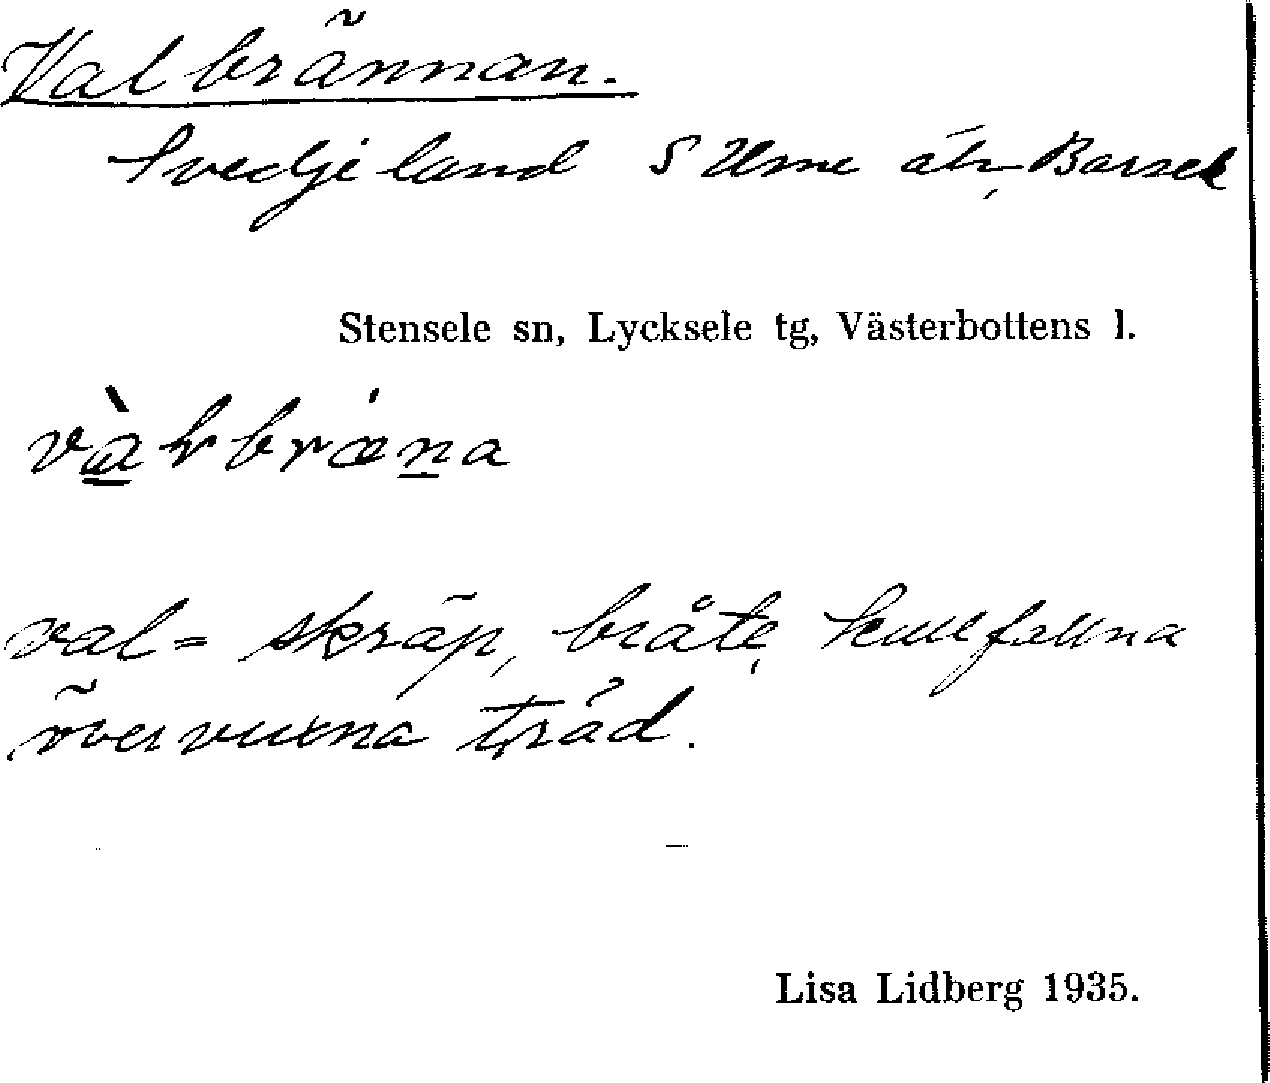 Valbrännan.
Svedjeland S Ume älv, Barsele
Stensele sn, Lycksele tg, Västerbottens l.
val = skräp, bråte, kullfallna
övervuxna träd.
Lisa Lidberg 1935.